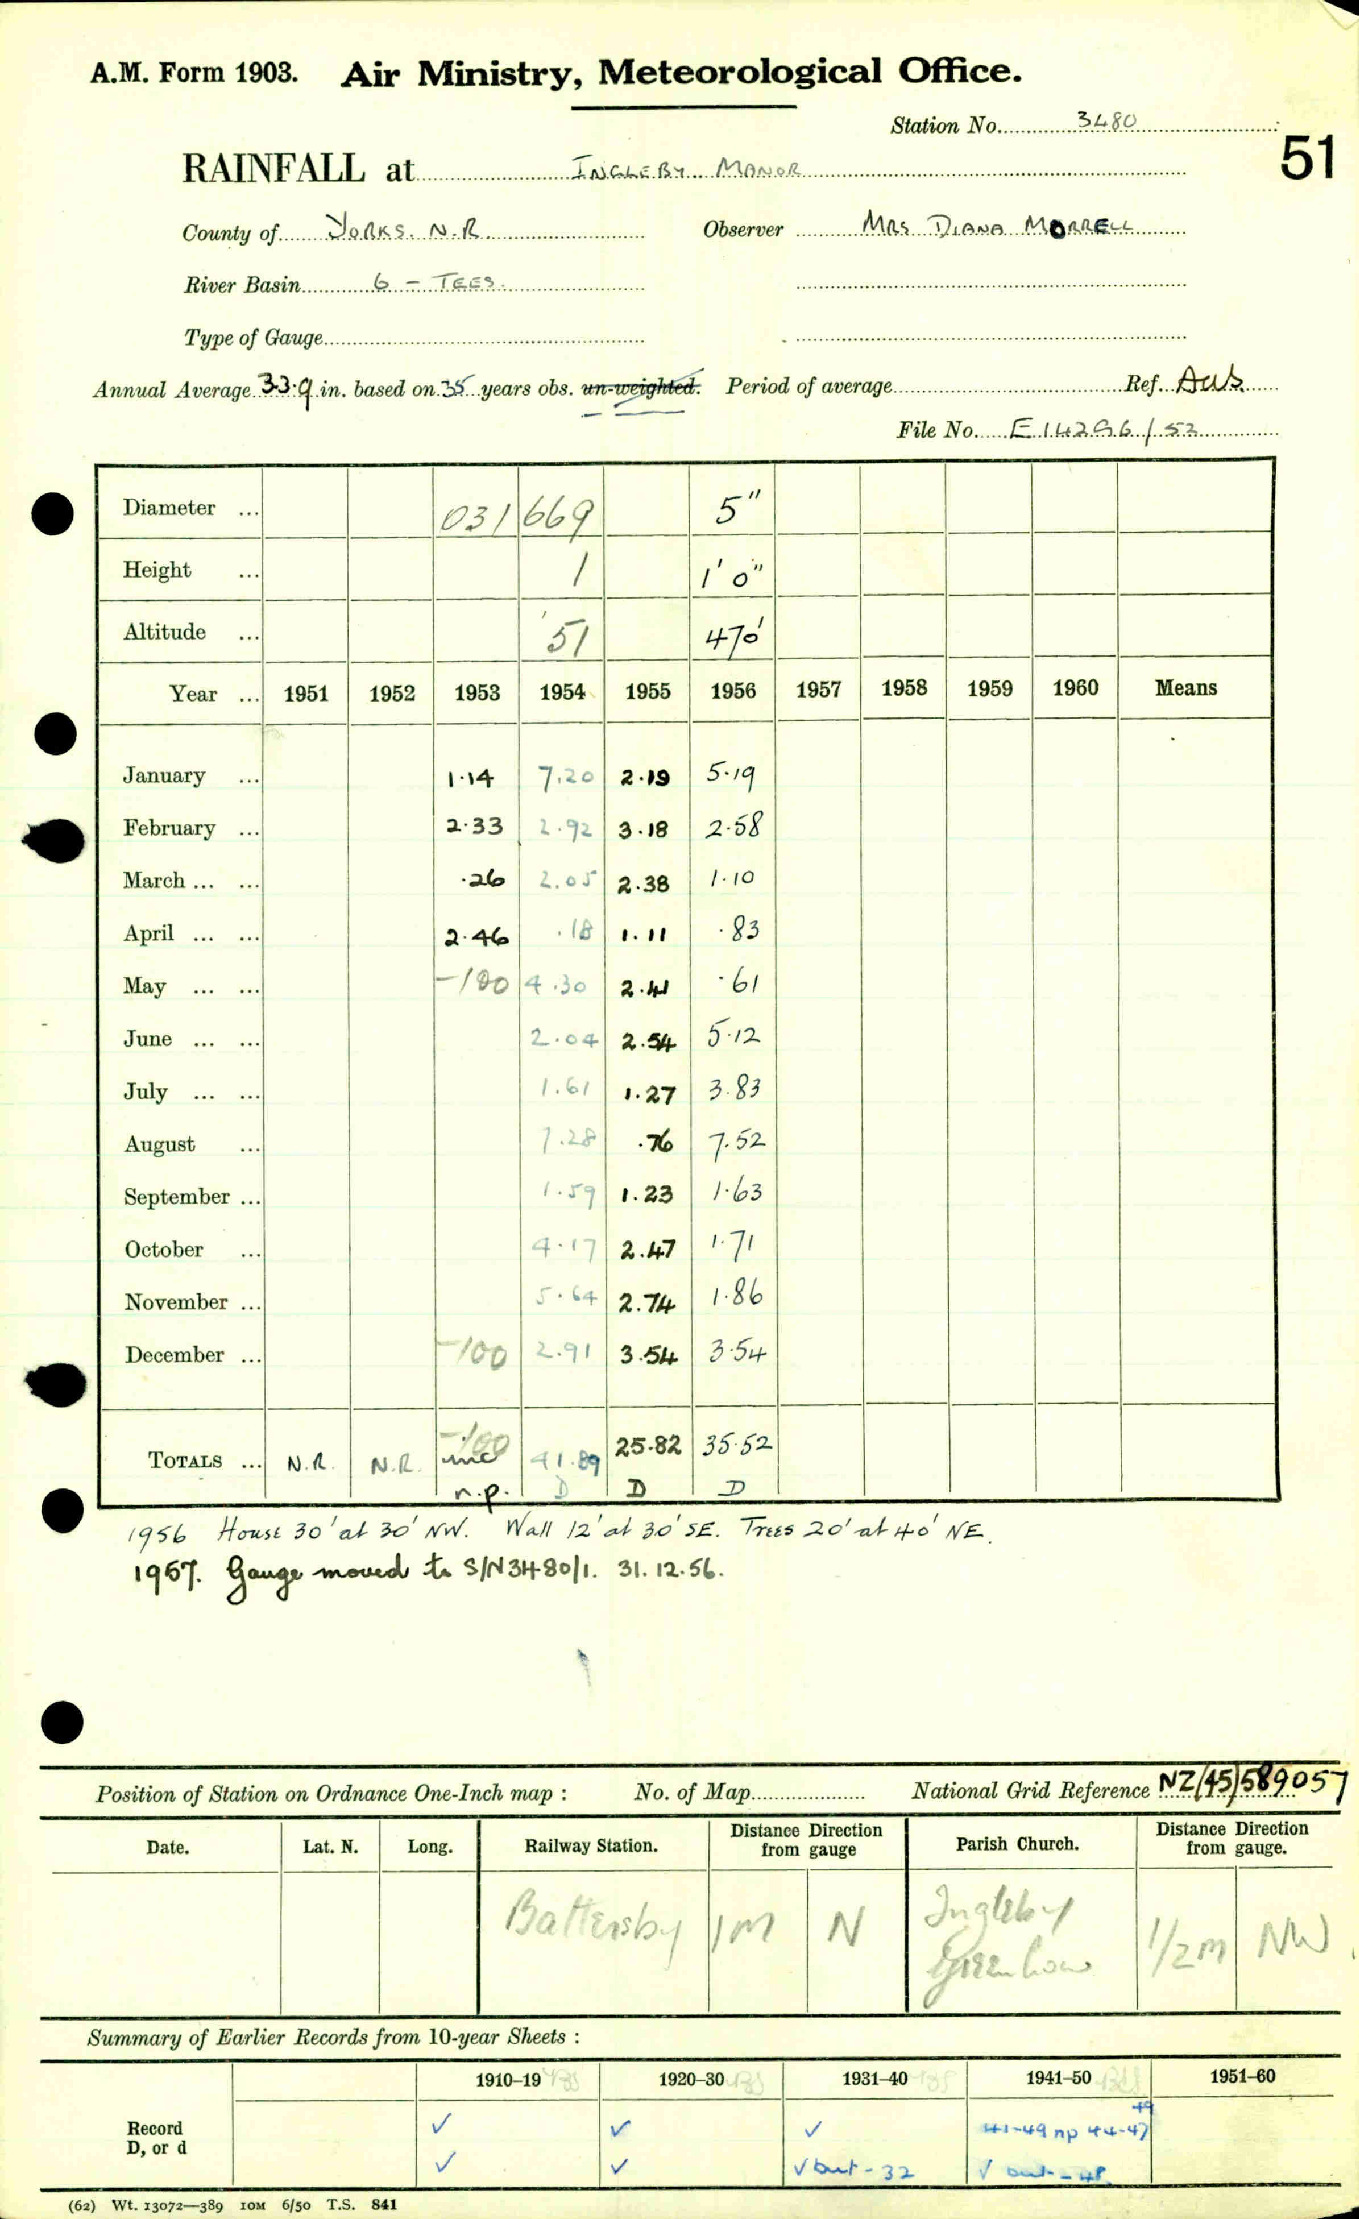 A.M. Form 1903. Air Ministry, Meteorological Office.
Station No. 3480
51
RAINFALL at INGLEBY MANOR
County of YORKS. N.R. Observer MRS DIANA MORRELL
River Basin 6 – TEES.
Type of Gauge
Annual Average 33.9 in. based on 35 years obs. un-weighted. Period of average Ref.
File No. E 14296/52
Diameter ... 031 669 5"
Height ... 1 1' 0"
Altitude ... 51 470'
Year ... 1951 1952 1953 1954 1955 1956 1957 1958 1959 1960 Means
January ... 1.14 7.20 2.19 5.19
February ... 2.33 2.92 3.18 2.58
March ... ... .26 2.05 2.38 1.10
April ... ... 2.46 .18 1.11 .83
May ... ... -100 4.30 2.41 .61
June ... ... 2.04 2.54 5.12
July ... ... 1.61 1.27 3.83
August ... 7.28 .76 7.52
September ... 1.59 1.23 1.63
October ... 4.17 2.47 1.71
November ... 5.64 2.74 1.86
December ... -100 2.91 3.54 3.54
-100
TOTALS ... N.R. N.R. inc 41.89 25.82 35.52
n.p. D D D
1956 House 30' at 30' NW. Wall 12' at 30' SE. Trees 20' at 40' NE.
1957. Gauge moved to S/N 3480/1. 31.12.56.
Position of Station on Ordnance One-Inch map : No. of Map National Grid Reference NZ/45/589057
Date. Lat. N. Long. Railway Station. Distance from Direction gauge Parish Church. Distance from Direction gauge.
Battersby 1M N Ingleby Greenhow 1/2 M NW
Summary of Earlier Records from 10-year Sheets :
1910–19 1920–30 1931–40 1941–50 1951–60
49
Record ✓ ✓ ✓ 41-49 np 44-47
D, or d ✓ ✓ ✓ but - 32 ✓ but - 48
(62) Wt. 13072—389 10M 6/50 T.S. 841